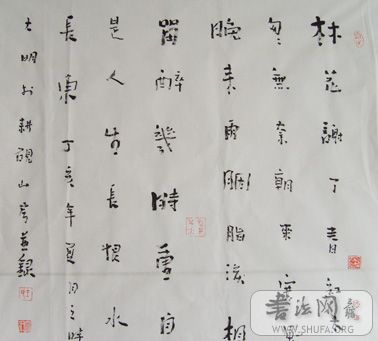 林花謝了春紅
匆匆無奈朝來寒
晚來雨胭脂淚相
留醉幾時重自
是人生長恨水
長東丁亥年夏月之時
大明於耕硯山房並錄
書法网
WWW.SHUFA.ORG